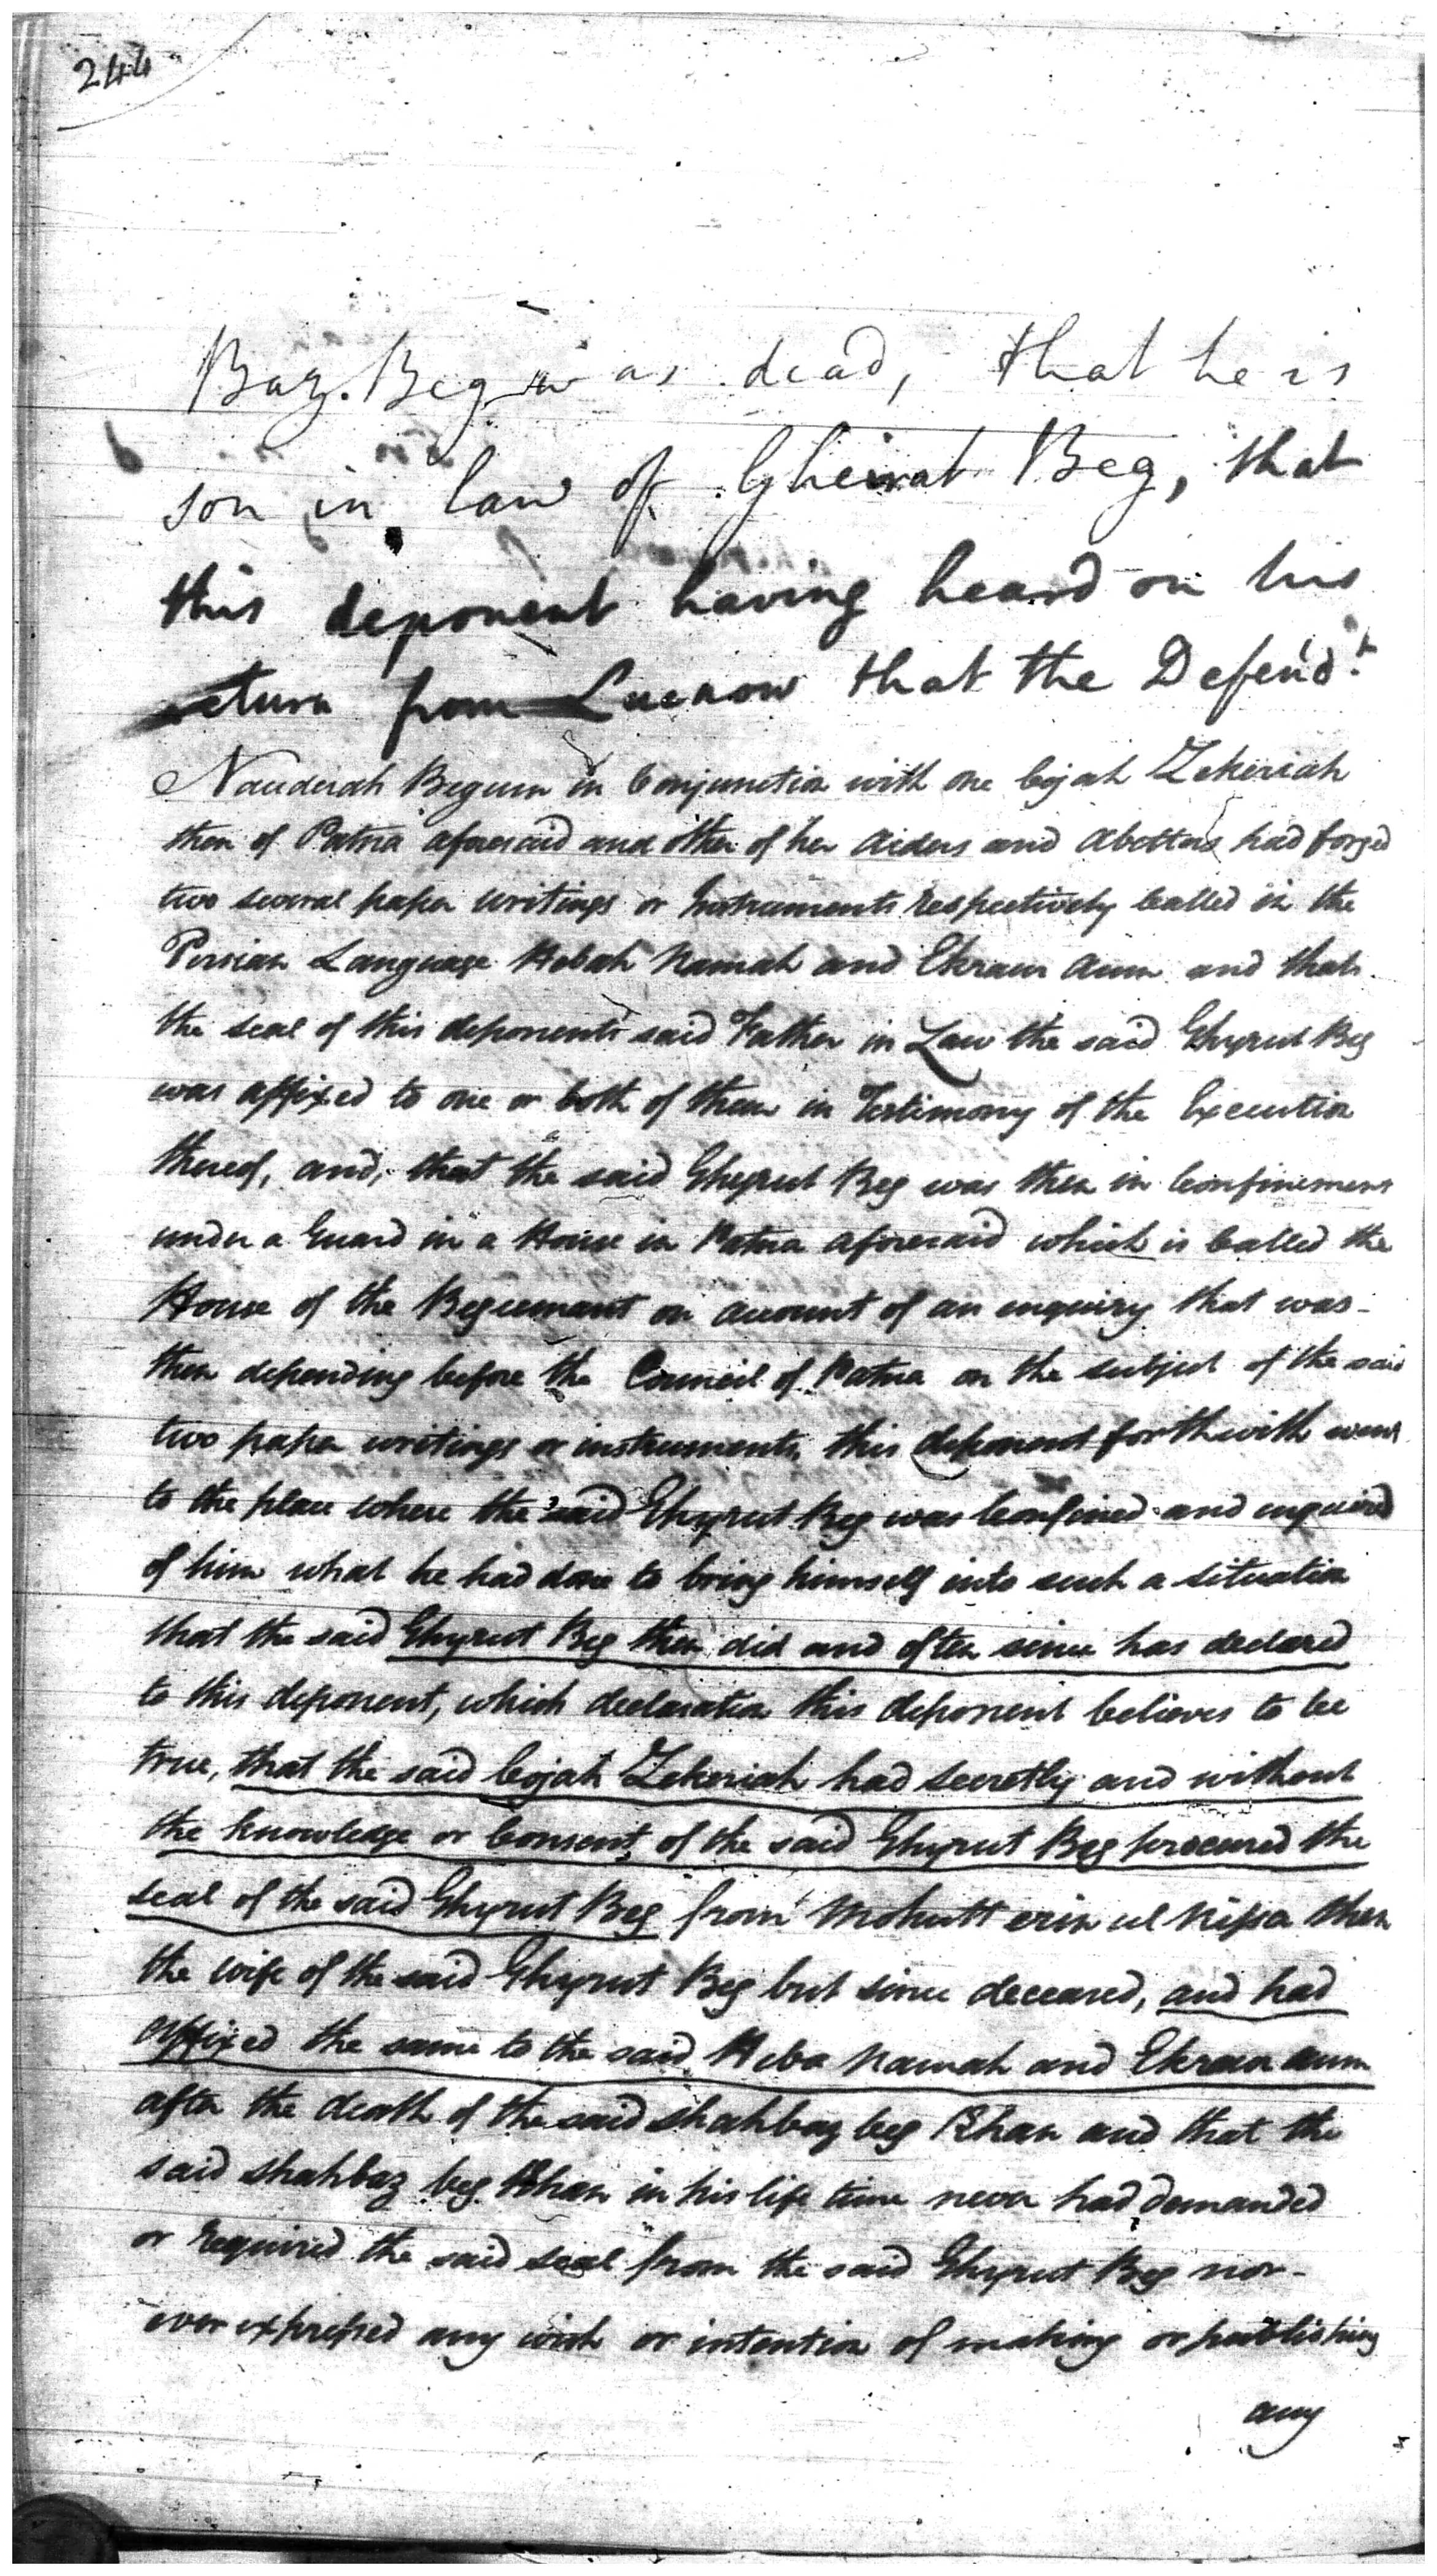 244
Baz. Beg was dead, that he is
son in law of Gheirat Beg, that
this deponent having heard on his
return from Lucnow that the Defend.t
Nauderah Begum in Conjunction with one Cojah Zekeriah
then of Patna aforesaid and other of her Aiders and Abettors had forged
two several paper writings or Instruments respectively called in the
Persian Language Hebah Namah and Ekraur Aum and that
the seal of this deponents said Father in Law the said Ghyrut Beg
was affixed to one or both of them in Testimony of the Execution
thereof, and, that the said Ghyrut Beg was then in Confinement
under a Guard in a House in Patna aforesaid which is called the
House of the Begum on account of an enquiry that was
then depending before the Council of Patna on the subject of the said
two paper writings or instruments, this deponent forthwith went
to the place where the said Ghyrut Beg was Confined and enquired
of him what he had done to bring himself into such a situation
that the said Ghyrut Beg then did and often since has declared
to this deponent, which declaration this deponent believes to be
true, that the said Cojah Zekeriah had secretly and without
the knowledge or Consent of the said Ghyrut Beg procured the
seal of the said Ghyrut Beg from then
the wife of the said Ghyrut Beg but since deceased, and had
affixed the same to the said Heba Namah and Ekraur aum
after the death of the said shahbaz beg Khan and that the
said shahbaz beg Khan in his life time never had demanded
or required the said seal from the said Ghyrut Beg nor-
ever expressed any wish or intention of making or publishing
any